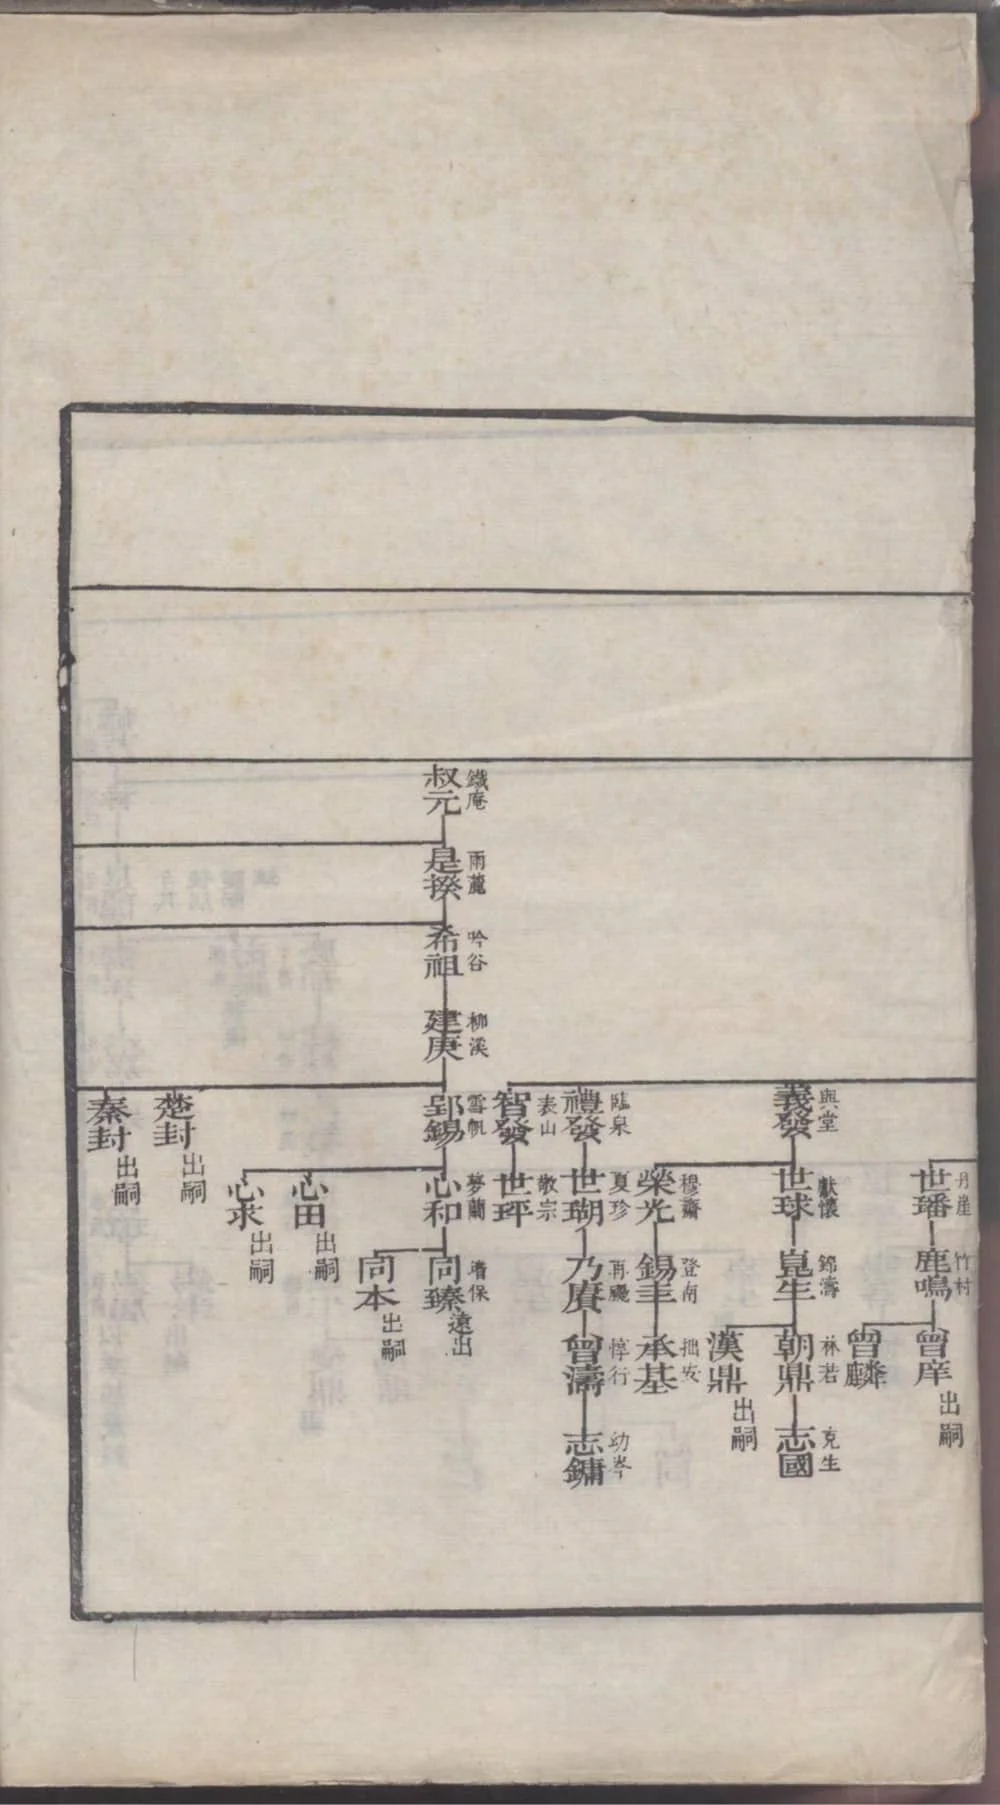 世璠 丹崖
鹿鳴 竹村
曾庠 出嗣
曾麟
義發 與堂
世球 獻懷
崑生 錦濤
朝鼎 林若
志國 克生
漢鼎 出嗣
榮光 穆齋
錫圭 登南
承基 拙安
禮發 臨泉
世瑚 夏珍
乃賡 再颺
曾濤 惇行
志鏞 幼岑
智發 表山
世玶 敬宗
叔元 鐵庵
是揆 雨麓
希祖 吟谷
建庚 柳溪
郢錫 雪帆
心和 夢蘭
同臻 遠出
同本 出嗣
心田 出嗣
心求 出嗣
楚封 出嗣
秦封 出嗣